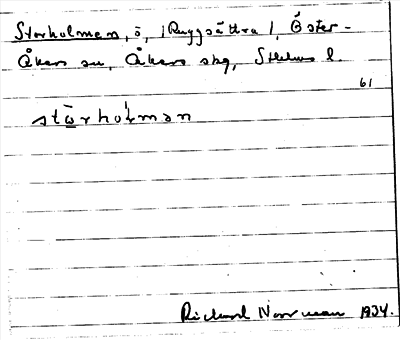 Storholmen, ö, (Ruggsättra), Öster-
Åkers sn, Åkers skg, Sthlms l.
61
stọ̄rhoʹlmən
Rickard Norrman 1934.